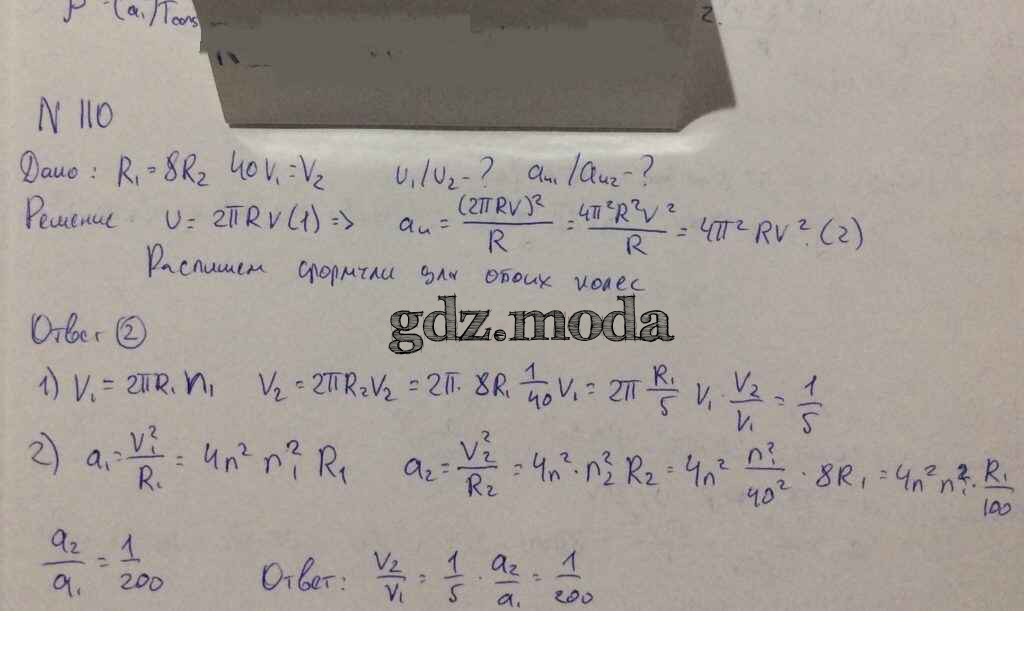 (a₁)Tcons
2.
N 110
Дано: R₁ = 8R₂ 40ν₁ = V₂ υ₁/υ₂ - ? aн₁/aн₂ - ?
Решение υ = 2πRν (1) => aн = (2πRν)²/R = 4π²R²ν²/R = 4π²Rν². (2)
Распишем формулы для обоих колес
gdz.moda
Ответ ②
1) V₁ = 2πR₁n₁ V₂ = 2πR₂V₂ = 2π · 8R₁ 1/40 V₁ = 2π R₁/5 V₁ · V₂/V₁ = 1/5
2) a₁ = V₁²/R₁ = 4n² n₁² R₁ a₂ = V₂²/R₂ = 4n² · n₂² R₂ = 4n² n₁²/40² · 8R₁ = 4n² n₁² · R₁/100
a₂/a₁ = 1/200 Ответ: V₂/V₁ = 1/5 · a₂/a₁ = 1/200